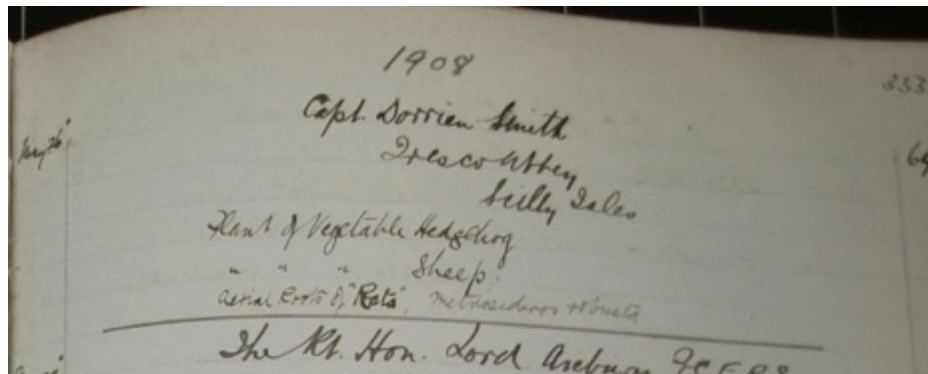 1908
333
Capt. Dorrien Smith
May 26
Tresco Abbey
64
Scilly Isles
Plant of Vegetable Hedgehog
" " " Sheep.
Aerial Roots of "Rata", Metrosideros robusta
The Rt. Hon. Lord Avebury